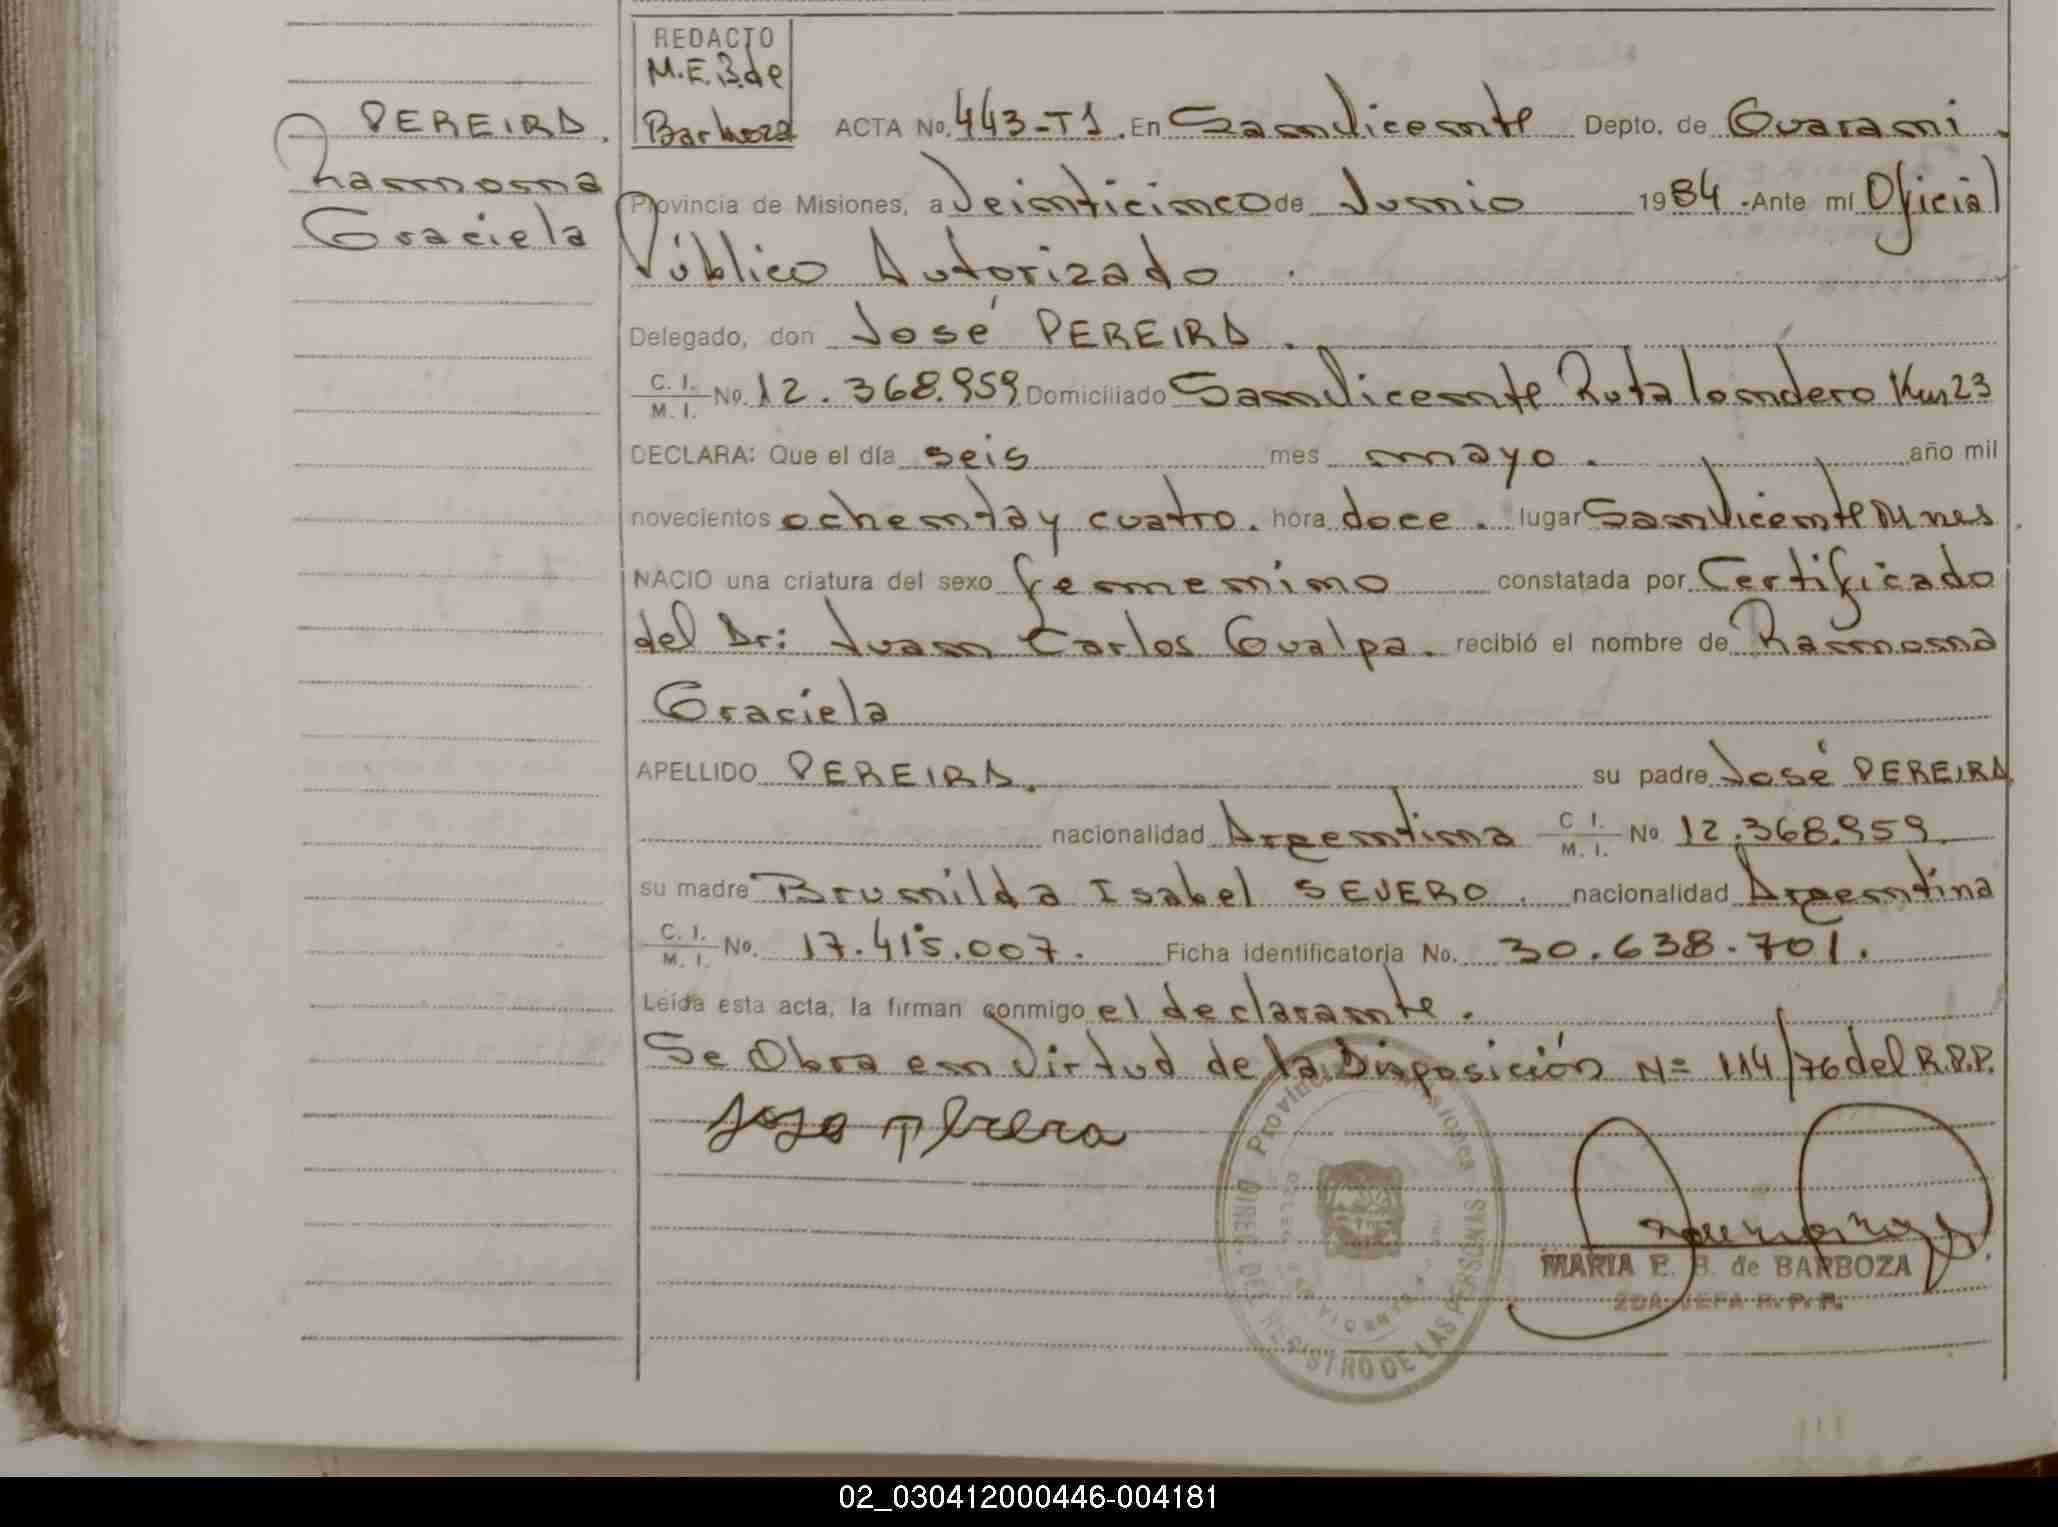 PEREIRA.
Ramona
Graciela
REDACTO
M.E.B. de
Barboza
ACTA No. 443-T1. En San Vicente Depto. de Guarani.
Provincia de Misiones, a Veinticinco de Junio 1984.-Ante mí Oficial
Público Autorizado.
Delegado, don José PEREIRA.
C. I. / M. I. No. 12.368.959 Domiciliado San Vicente Ruta londero Km 23
DECLARA: Que el día seis mes mayo. año mil
novecientos ochenta y cuatro. hora doce. lugar San Vicente Mnes.
NACIO una criatura del sexo femenino constatada por Certificado
del Dr: Juan Carlos Gualpa. recibió el nombre de Ramona
Graciela
APELLIDO PEREIRA. su padre José PEREIRA
nacionalidad Argentina C I. / M. I. No 12.368.959
su madre Brunilda Isabel SEVERO. nacionalidad Argentina
C. I. / M. I. No. 17.415.007. Ficha identificatoria No. 30.638.701.
Leída esta acta, la firman conmigo el declarante.
Se Obra en Virtud de la Disposición Nº 114/76 del R.P.P.
PROVINCIA Misiones
DIREC. DEL REGISTRO DE LAS PERSONAS
MARIA E. B. de BARBOZA
2DA. JEFA R. P. P.
02_030412000446-004181